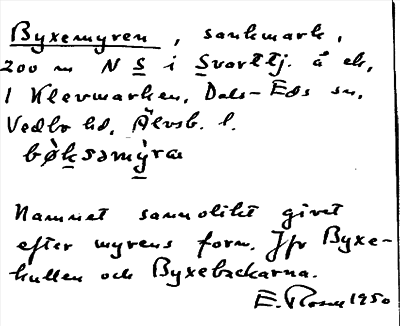 Byxemyren, sankmark,
200 m N S i Svarttj. å ek,
1 Klevmarken, Dals-Eds sn,
Vedbo hd, Älvsb. l.
bø̀ksəmỳra
Namnet sannolikt givet
efter myrens form. Jfr Byxe-
kullen och Byxebackarna.
E. 1950